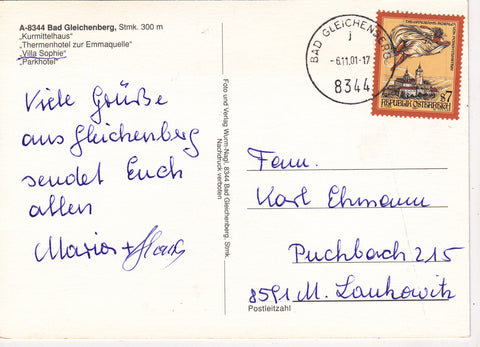 A-8344 Bad Gleichenberg, Stmk. 300 m
„Kurmittelhaus“
„Thermenhotel zur Emmaquelle“
„Villa Sophie“
„Parkhotel“
Viele Grüße
aus Gleichenberg
sendet Euch
allen
Maria +
Foto und Verlag Wurm-Nagl, 8344 Bad Gleichenberg, Stmk.
Nachdruck verboten
BAD GLEICHENBERG
- 6.11.01-17
8344
S7
REPUBLIK ÖSTERREICH
Fam.
Karl Ehmann
Puchbach 215
8591 M. Lankowitz
Postleitzahl